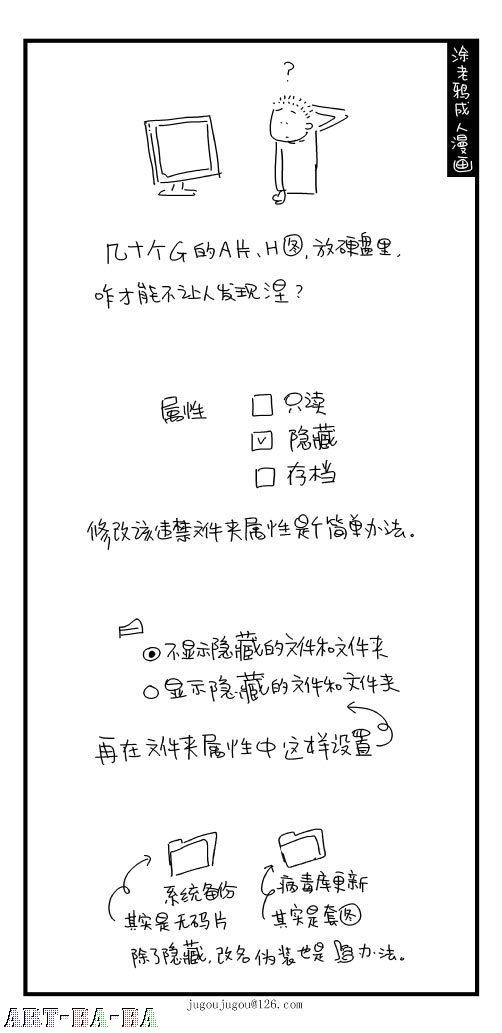 涂老鸦成人漫画
?
几十个G的A片、H图,放硬盘里,
咋才能不让人发现涅?
属性 只读
隐藏
存档
修改该违禁文件夹属性是个简单办法。
不显示隐藏的文件和文件夹
显示隐藏的文件和文件夹
再在文件夹属性中这样设置
系统备份 病毒库更新
其实是无码片 其实是套图
除了隐藏,改名伪装也是办法。
jugoujugou@126.com
ART-BA-BA